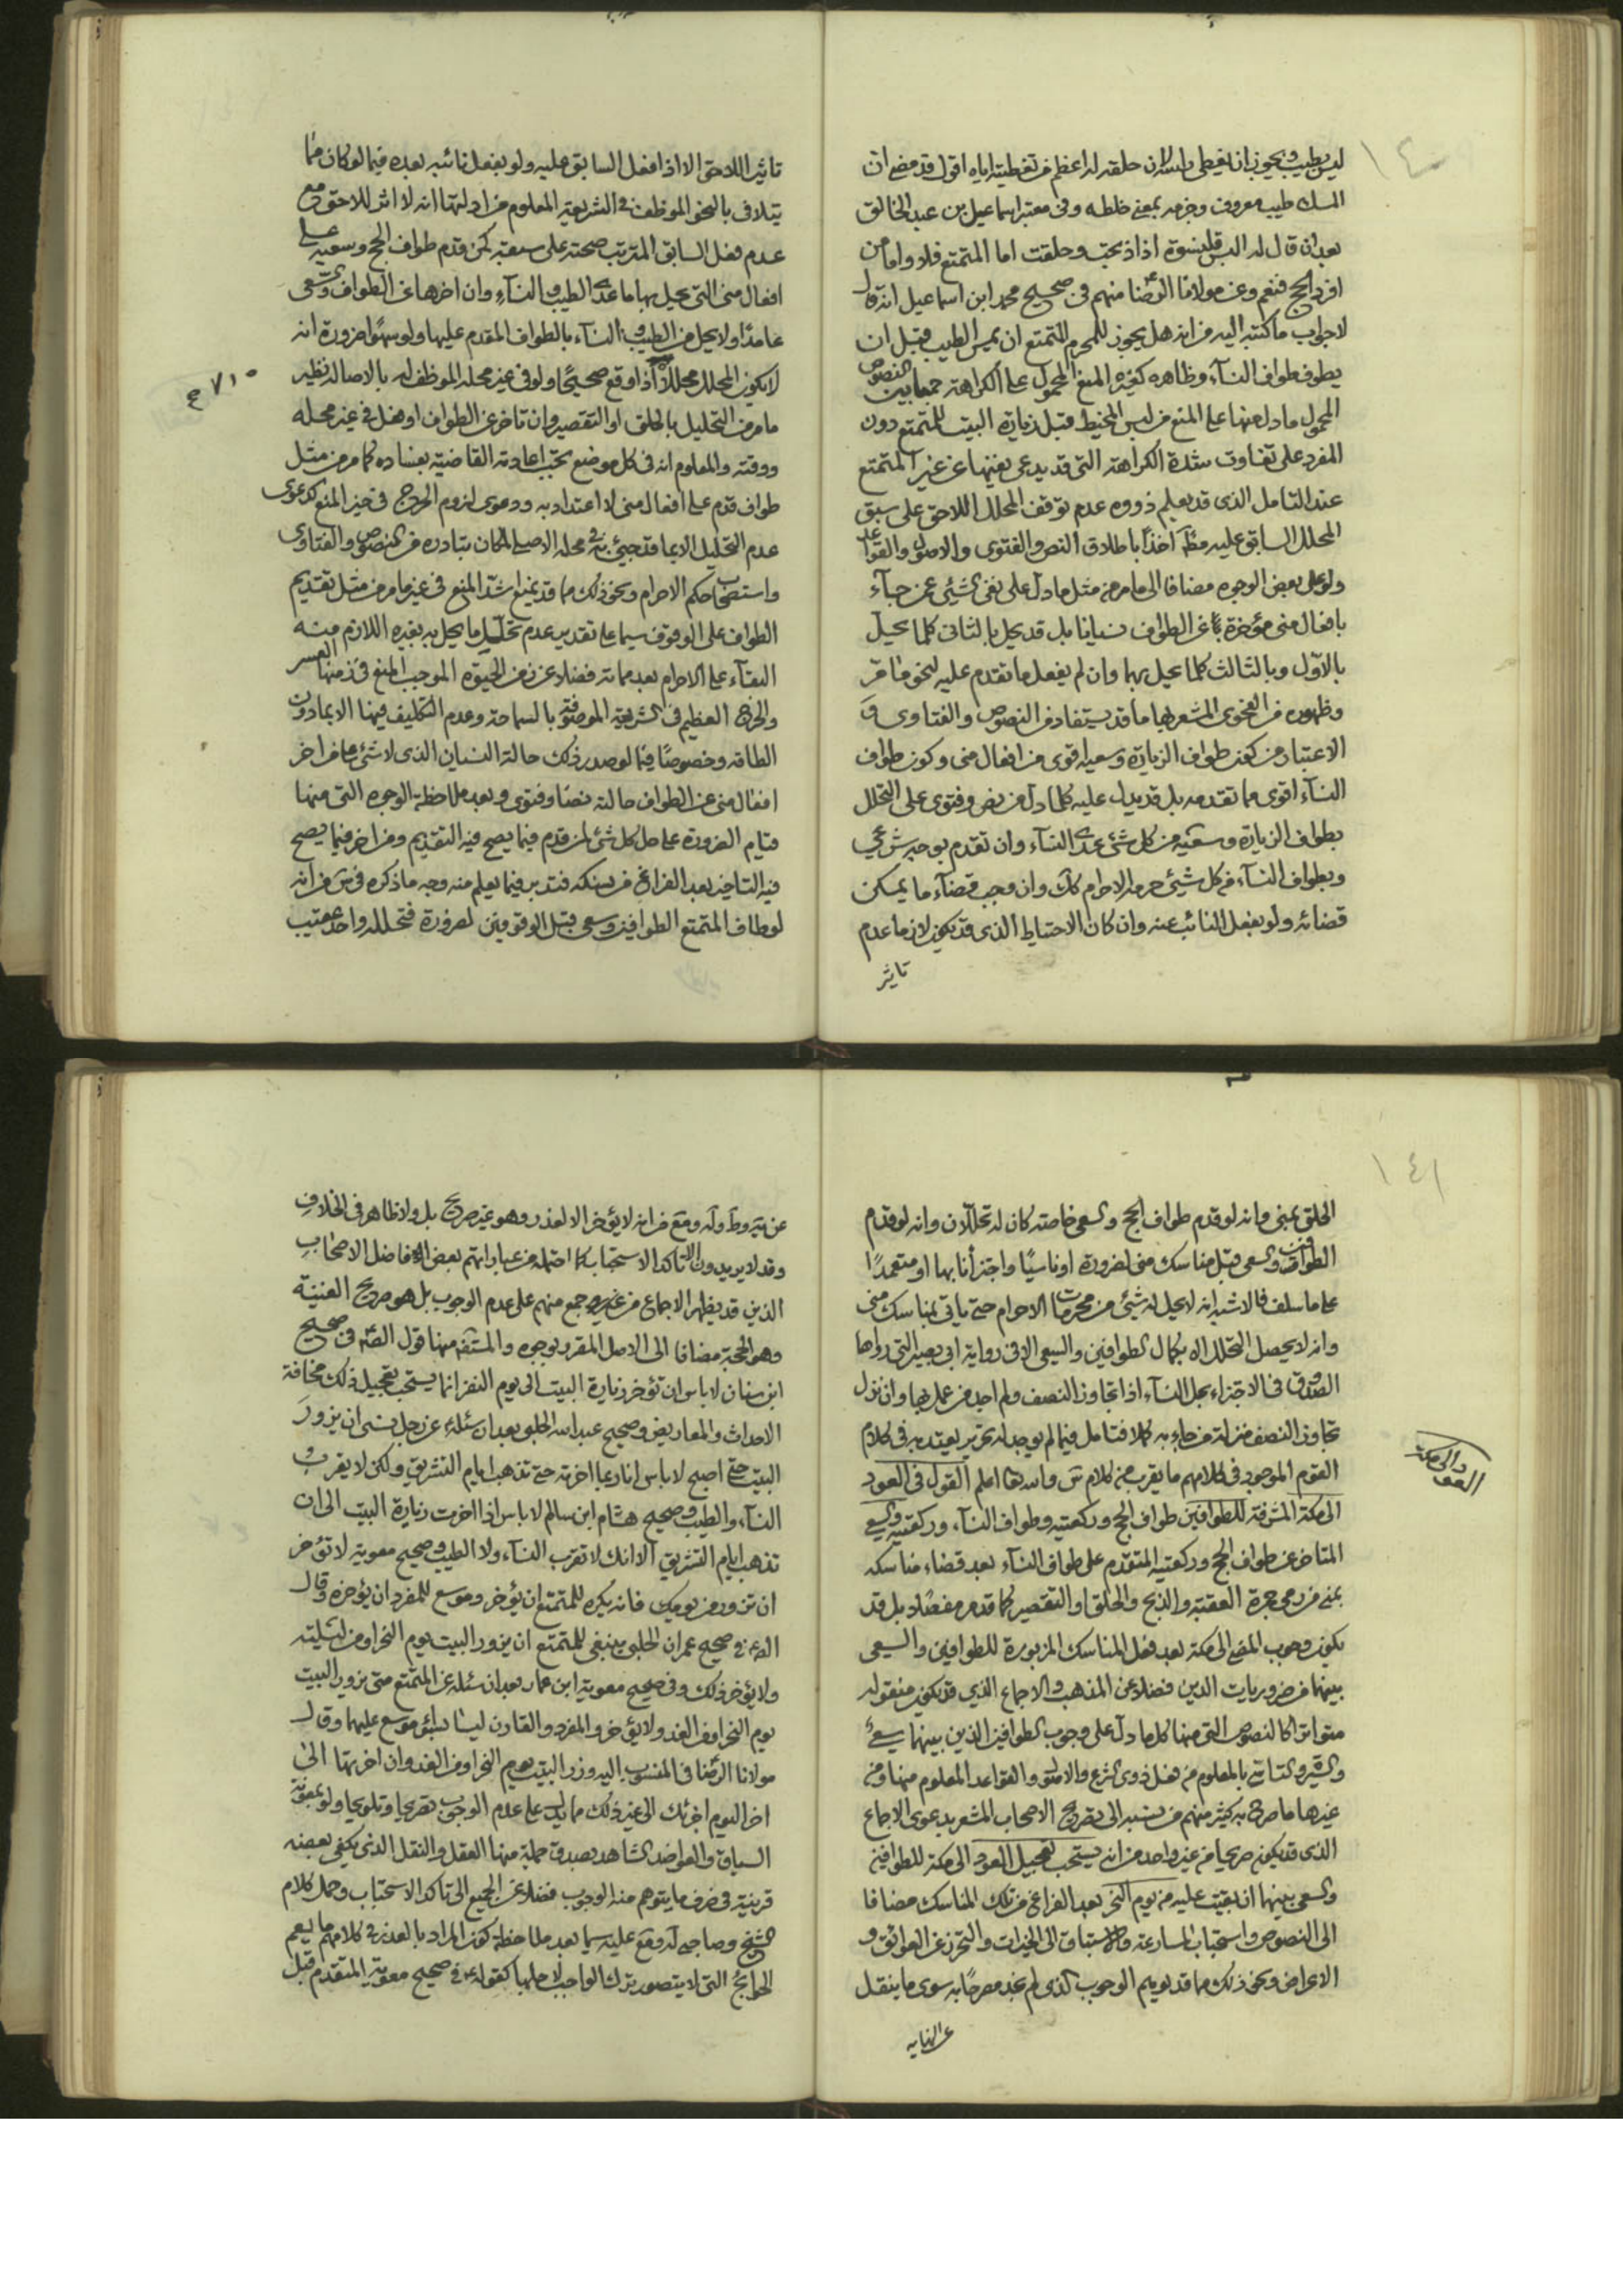 ١٤٠
ليس بطيب ويجوز ان يغطى راسه لان حلقه له اعظم من تغطيته اياه اقول قد مضى ان
المسك طيب معروف وخرمه بمعنى خلطه وفى معتبر اسماعيل بن عبد الخالق
بعد ان قال له البس قلنسوة اذا ذبحت وحلقت اما المتمتع فلا واما من
افرد الحج فنعم وعن مولانا الرضا منهم فى صحيح محمد ابن اسماعيل انه قال
لا جواب ما كتبه اليه من انه هل يجوز للمحرم المتمتع ان يمس الطيب قبل ان
يطوف طواف النسآء وظاهره كغيره المنع المحمول على الكراهة جمعا بين النصوص
المحمول ما دل منها على المنع من لبس المخيط قبل زيارة البيت للمتمتع دون
المفرد على تفاوت شدة الكراهة التى قد يدعى نفيها عن غير المتمتع
عند التامل الذى قد يعلم ذووه عدم توقف المحلل اللاحق على سبق
المحلل السابق عليه مطلقا اخذا باطلاق النص والفتوى والاصول والقواعد
ولو على بعض الوجوه مضافا الى ما مر من مثل ما دل على نفى الشيئ عمن جآء
بافعال منى مؤخرة عن الطواف نسيانا بل قد يحل بالثانى كلما يحل
بالاول وبالثالث كلما يحل بهما وان لم يفعل ما تقدم عليه لنحو ما مر
وظهوره من الفحوى المشعر بها ما قد يستفاد من النصوص والفتاوى و
الاعتبار من كون طواف الزيارة وسعيه اقوى من افعال منى وكون طواف
النسآء اقوى مما تقدمه بل قد يدل عليه كلما دل من نص وفتوى على التحلل
بطواف الزيارة وسعيه من كل شئ عدا النسآء وان تقدم بوجه شرعى
وبطواف النسآء من كل شيئ حرمه الاحرام كك وان وجب قضآء ما يمكن
قضائه ولو بفعل النائب عنه وان كان الاحتياط الذى قد يكون لازما عدم
تاثير
تاثير اللاحق الا اذا فعل السابق عليه ولو بفعل نائبه بعده فيما لو كان مما
يتلافى بالنحو الموظف فى الشريعة المعلوم من ادلتها انه لا اثر للاحق مع
عدم فعل السابق المترتب صحته على سبقه كمن قدم طواف الحج وسعيه على
افعال منى التى يحل بها ما عدا الطيب والنسآء وان اخرها عن الطواف والسعى
عامدا ولا يحل من الطيب والنسآء بالطواف المقدم عليها ولو سهوا ضرورة انه
لا يكون المحلل محللا الا اذا وقع صحيحا ولو فى غير محله الموظف له بالاصالة نظير
٧١٥
ما مر من التحليل بالحلق او التقصير وان تاخر عن الطواف او فعل فى غير محله
ووقته والمعلوم انه فى كل موضع تجب اعادته القاضية بفساده كما مر من مثل
طواف قدم على افعال منى لا اعتداد به ودعوى لزوم الحرج فى حيز المنع كدعوى
عدم التحليل الا بما قد جيئ به فى محله الاصلى لمكان تبادره من النصوص والفتاوى
واستصحاب حكم الاحرام ونحو ذلك مما قد يمنع اشد المنع فى غير ما مر من مثل تقديم
الطواف على الوقوف سيما على تقدير عدم تحليل ما يحل به بغيره اللازم منه
البقآء على الاحرام بعد مماته فضلا عن زمن الحيوة الموجب المنع فى زمنها العسر
والحرج العظيم فى الشريعة الموصوفة بالسماحة وعدم التكليف فيها الا بما دون
الطاقة وخصوصا فيما لو صدر ذلك حالة النسيان الذى لا شئ على من اخر
افعال منى عن الطواف حالته نصا وفتوى وبعد ملاحظة الوجوه التى منها
قيام الضرورة على حل كل شئ لمن قدم فيما يصح فيه التقديم ومن اخر فيما يصح
فيه التاخير بعد الفراغ من نسكه فتدبر فيما يعلم منه وجه ما ذكره فى س من انه
لو طاف المتمتع الطوافين وسعى قبل الوقوفين لضرورة فتحلله واحد عقيب
١٤١
الحلق بمنى وانه لو قدم طواف الحج والسعى خاصة كان له تحللان وانه لو قدم
الطوافين والسعى قبل مناسك منى لضرورة او ناسيا واجتزأنا بها او متعمدا
على ما سلف فالاشبه انه لا يحل له شئ من محرمات الاحرام حتى ياتى بمناسك منى
وانه لا يحصل التحلل الا بكمال الطوافين والسعى الا فى رواية ابى بصير التى رواها
الصدوق فى الاجتزاء بحل النسآء اذا تجاوز النصف ولم اجد من عمل بها وان نزل
تجاوز النصف منزلة من جاء به كملا فتامل فيما لم يوجد له تحرير يعتد به فى كلام
القوم الموجود فى كلامهم ما يقرب من كلام س والله تعالى اعلم القول فى العود
العود الى مكة
الى مكة المشرفة للطوافين طواف الحج وركعتيه وطواف النسآء وركعتيه والسعى
المتاخر عن طواف الحج وركعتيه المتقدم على طواف النسآء بعد قضاء مناسكه
بمنى من رمى جمرة العقبة والذبح والحلق او التقصير كما قد مر مفصلا بل قد
يكون وجوب المضى الى مكة بعد فعل المناسك المزبورة للطوافين والسعى
بينهما من ضروريات الدين فضلا عن المذهب والاجماع الذى قد يكون منقوله
متواترا كالنصوص التى منها كلما دل على وجوب الطوافين الذين بينهما سعى
والسيرة والتاسى بالمعلوم من فعل ذوى الشرع والاصول والقواعد المعلوم منها ومن
غيرها ما صرح به كثير منهم من نسبه الى تصريح الاصحاب المشعر بدعوى الاجماع
الذى قد يكون صريحا من غير واحد من انه يستحب تعجيل العود الى مكة للطوافين
والسعى بينهما ان بقيت عليه من يوم النحر بعد الفراغ من تلك المناسك مضافا
الى النصوص واستحباب المسارعة والاستباق الى الخيرات والتحرز عن العوائق و
الاعراض ونحو ذلك مما قد يوهم الوجوب الذى لم نجد مصرحا به سوى ما ينقل
عن النهايه
عن يه وط وله ومع من انه لا يؤخر الا لعذر وهو غير صريح بل ولا ظاهر فى الخلاف
وقد لا يريدون الا تاكد الاستحباب كما احتمله من عباراتهم بعض الافاضل الاصحاب
الذين قد يظهر الاجماع من غير جمع منهم على عدم الوجوب بل هو صريح الغنية
وهو الحجة مضافا الى الاصل المقرر بوجوه والمستفيضة منها قول الصادق فى صحيح
ابن سنان لا باس ان تؤخر زيارة البيت الى يوم النفر انما يستحب تعجيل ذلك مخافة
الاحداث والمعاريض وصحيح عبيد الله الحلبى بعد ان سئله عن رجل نسى ان يزور
البيت حتى اصبح لا باس انا ربما اخرته حتى تذهب ايام التشريق ولكن لا يقرب
النسآء والطيب وصحيح هشام ابن سالم لا باس ان اخرت زيارة البيت الى ان
تذهب ايام التشريق الا انك لا تقرب النسآء ولا الطيب وصحيح معوية لا تؤخر
ان تزور من يومك فانه يكره للمتمتع ان يؤخر وموسع للمفرد ان يؤخره وقال
الصادق فى صحيح عمران الحلبى ينبغى للمتمتع ان يزور البيت يوم النحر او من ليلته
ولا يؤخر ذلك وفى صحيح معوية ابن عمار بعد ان سئله عن المتمتع متى يزور البيت
يوم النحر او من الغد ولا يؤخر والمفرد والقارن ليسا بسواء موسع عليهما وقال
مولانا الرضا فى المنسوب اليه وزر البيت يوم النحر او من الغد وان اخرتها الى
اخر اليوم اجزئك الى غير ذلك مما يدل على عدم الوجوب تصريحا وتلويحا ولو بمعونة
السياق والعواضد الشاهد بصدق جملة منها العقل والنقل الذى يكفى بعضه
قرينة فى صرف ما يتوهم منه الوجوب فضلا عن الجميع الى تاكد الاستحباب وحمل كلام
الشيخ وصاحبى له ومع عليه سيما بعد ملاحظة كون المراد بالعذر فى كلامهم ما يعم
الحوائج التى لا يتصور بترك الواجب لاجلها كقوله فى صحيح معوية المتقدم قبل